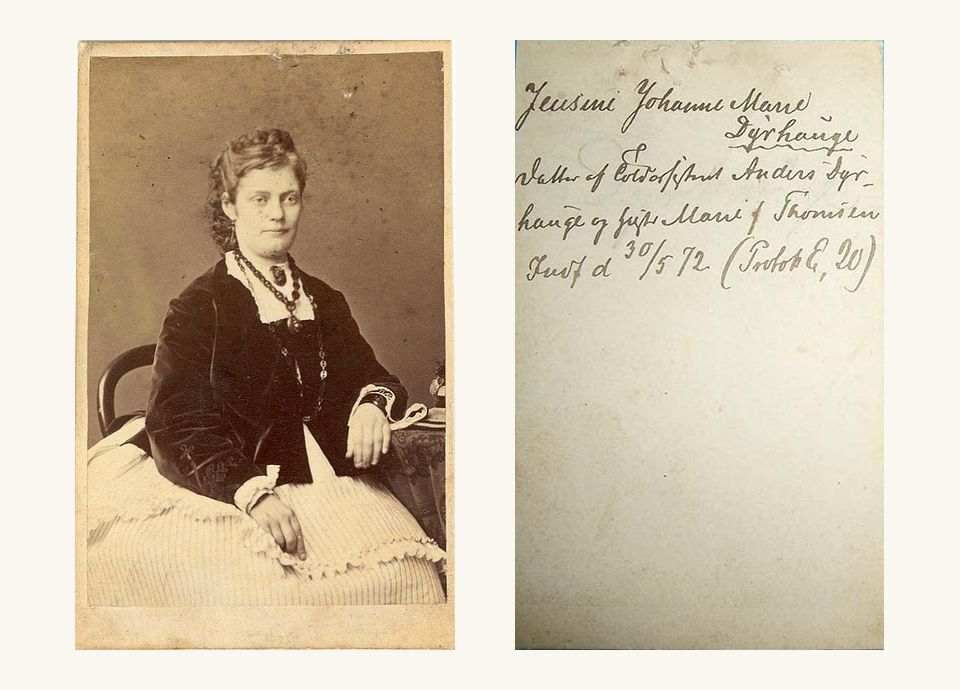 Jensine Johanne Marie
Dyrhauge
Datter af Toldassistent Anders Dyr-
hauge og Marie f Thomsen
Indf d 30/5 72 (Protok E, 20)